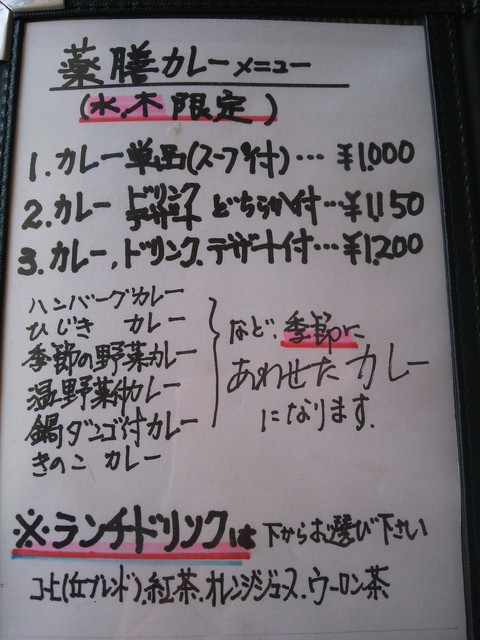 薬膳カレーメニュー
(水,木限定)
1.カレー単品(スープ付)…¥1,000
2.カレー ドリンク デザート どちらか付…¥1,150
3.カレー,ドリンク,デザート付…¥1,200
ハンバーグカレー
ひじき カレー
季節の野菜カレー
温野菜付カレー
鍋ダンゴ付カレー
きのこ カレー
など、季節に
あわせたカレー
になります.
※ランチドリンクは 下からお選び下さい
コーヒー(ブレンド),紅茶,オレンジジュース,ウーロン茶